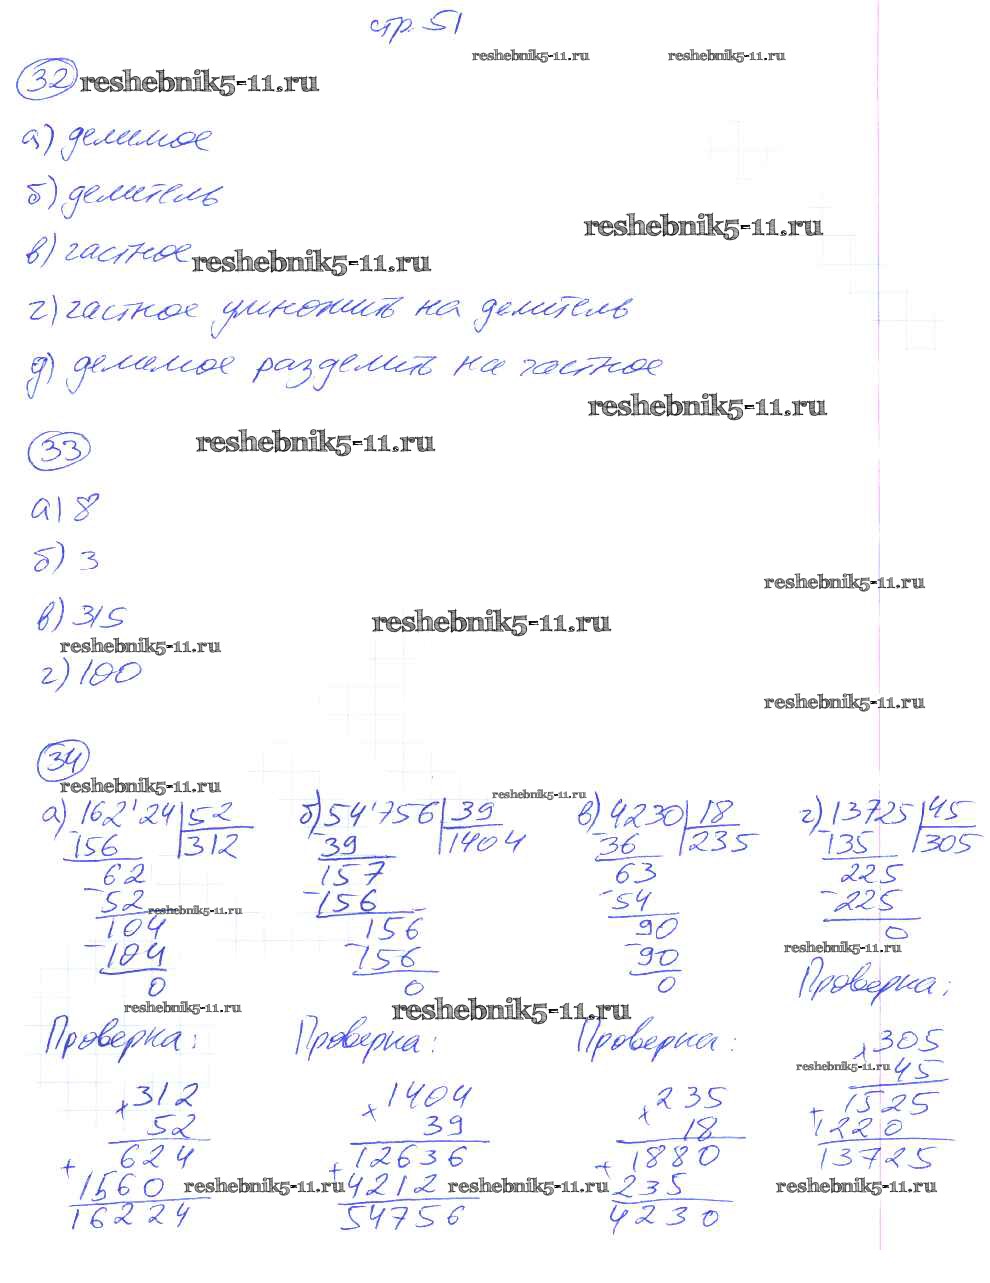 стр. 51
reshebnik5-11.ru reshebnik5-11.ru
32 reshebnik5-11.ru
а) делимое
б) делитель
reshebnik5-11.ru
в) частное reshebnik5-11.ru
г) частное умножить на делитель
д) делимое разделить на частное
reshebnik5-11.ru
33 reshebnik5-11.ru
а) 8
б) 3
reshebnik5-11.ru
в) 315 reshebnik5-11.ru
reshebnik5-11.ru
г) 100
reshebnik5-11.ru
34
reshebnik5-11.ru
reshebnik5-11.ru
а) 162'24 | 52 б) 54'756 | 39 в) 4230 | 18 г) 13725 | 45
- 156 | 312 - 39 | 1404 - 36 | 235 - 135 | 305
62 157 63 225
- 52 - 156 - 54 - 225
reshebnik5-11.ru
104 156 90 0
- 104 - 156 - 90 reshebnik5-11.ru
0 0 0 Проверка:
reshebnik5-11.ru reshebnik5-11.ru
Проверка: Проверка: Проверка: x 305
reshebnik5-11.ru
45
x 312 x 1404 x 235 + 1525
52 39 18 1220
+ 624 + 12636 + 1880 13725
1560 reshebnik5-11.ru 4212 reshebnik5-11.ru 235 reshebnik5-11.ru
16224 54756 4230